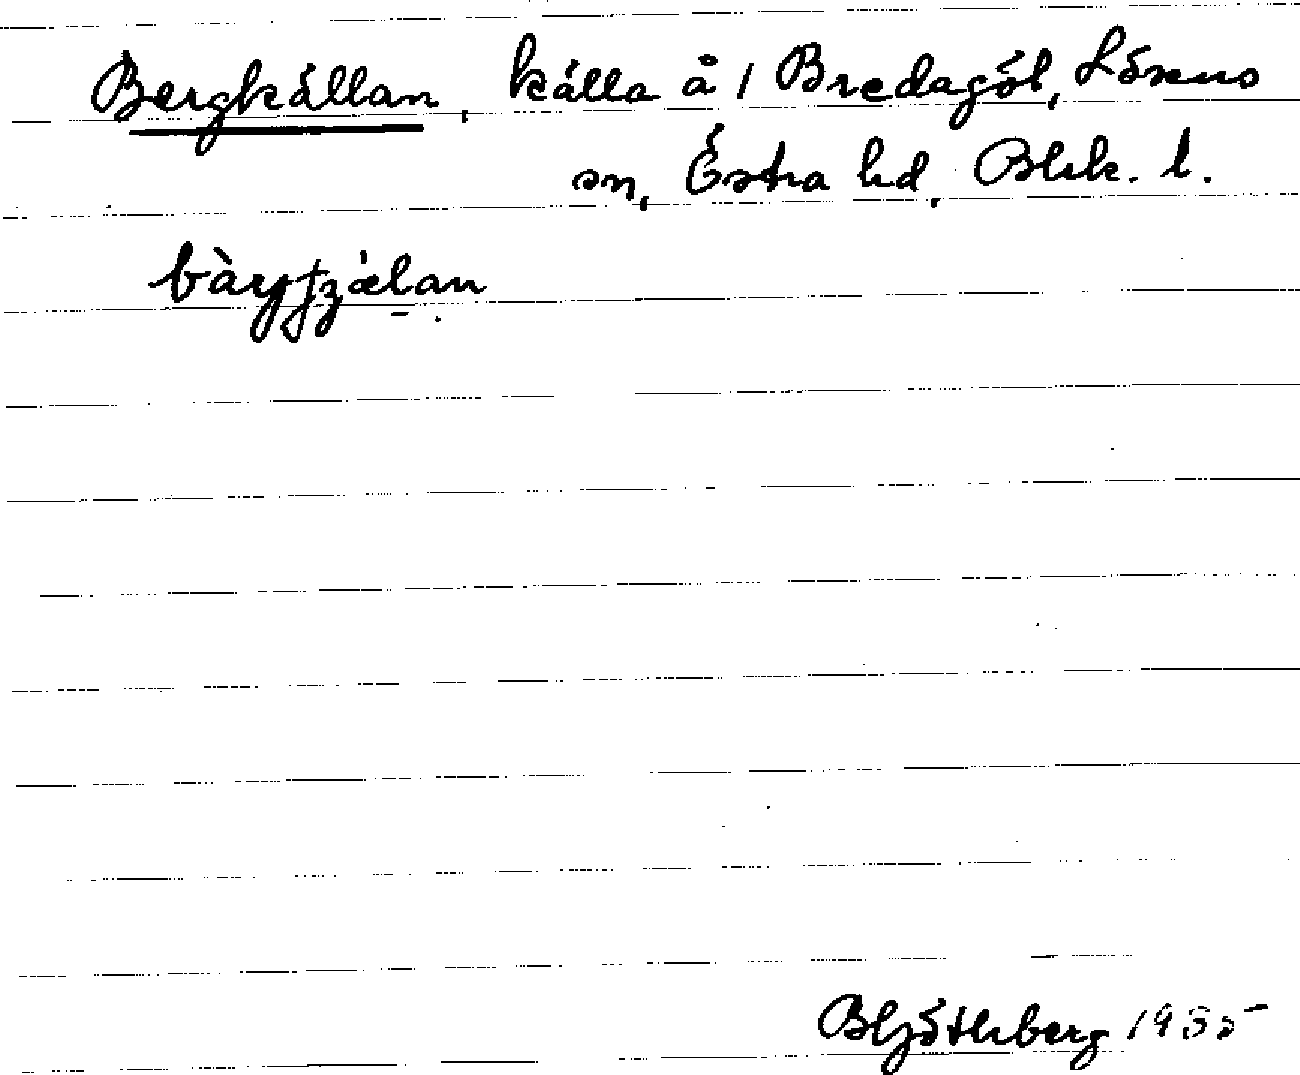 Bergkällan, källa å 1 Bredagöl, Lösens
sn, Östra hd, Blek. l.
1935